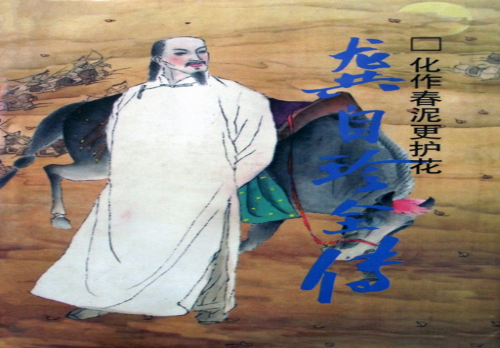 □化作春泥更护花
龚自珍全传